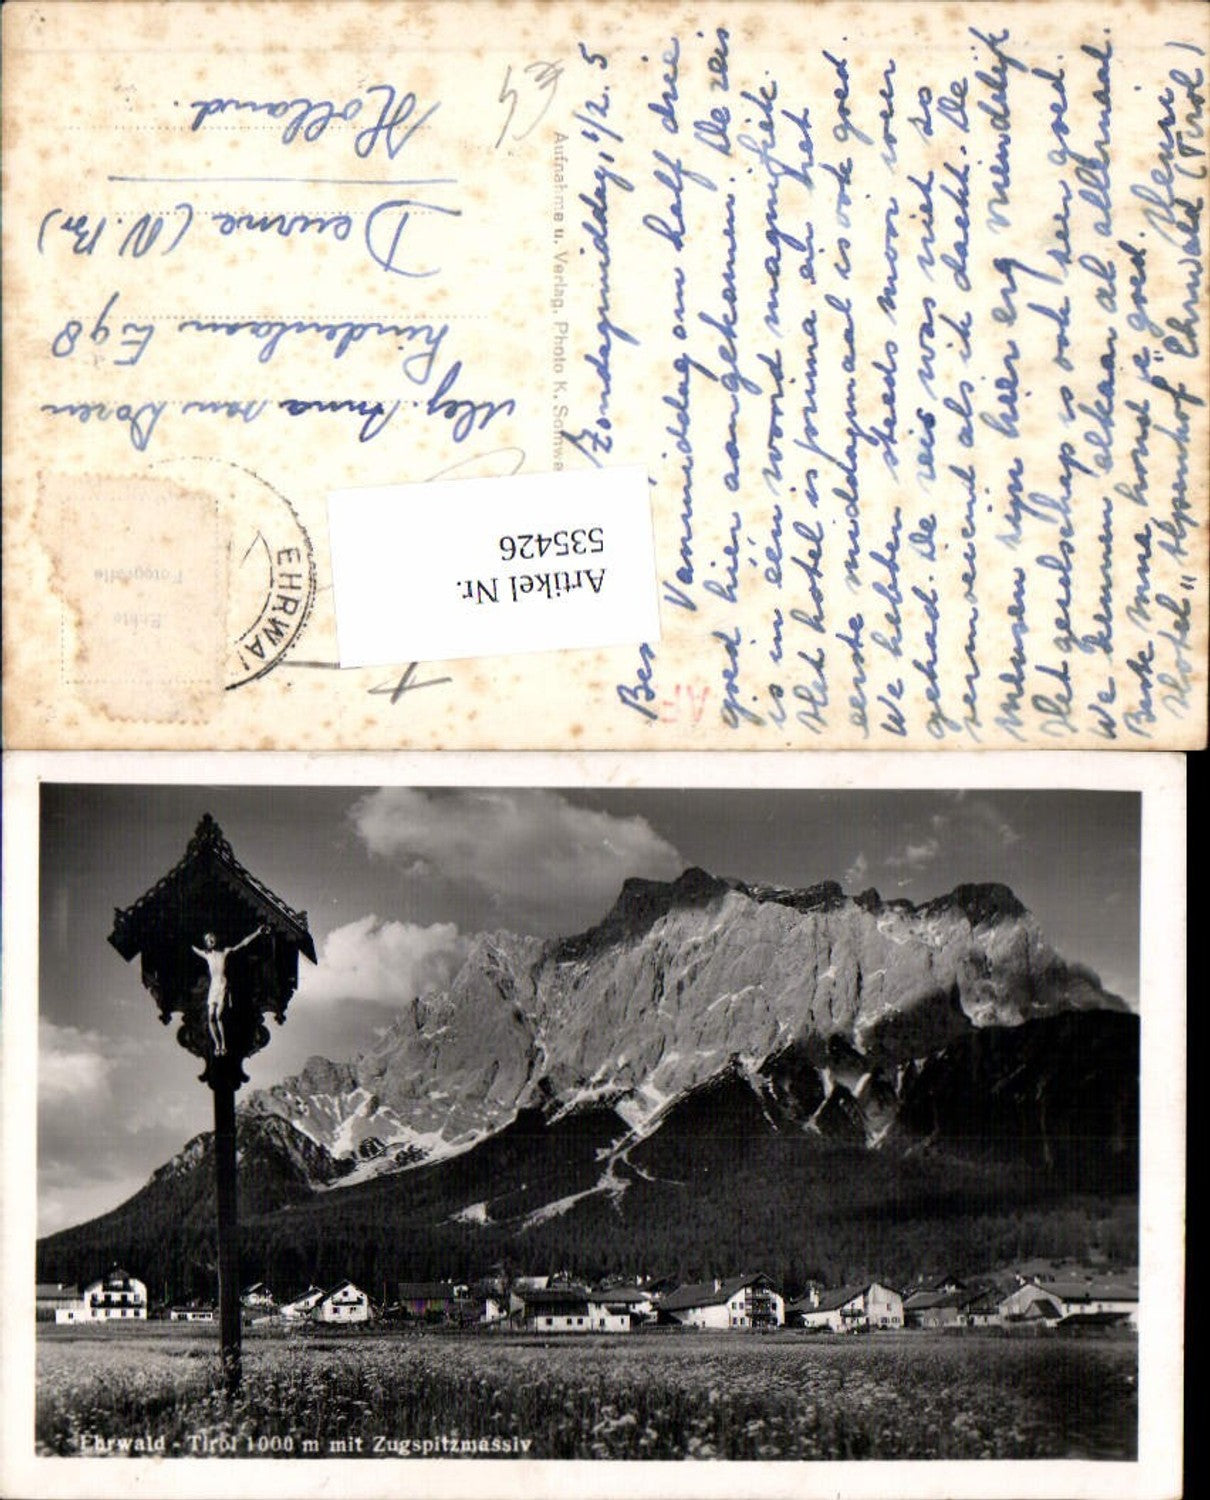 Zondagmiddag, 1/2. 5
Vanmiddag om half drie
goed hier aangekomen. De reis
is in één woord magnifiek
Het hotel is prima en het
eerste middagmaal is ook goed.
We hebben steeds mooi weer
gehad. De reis was niet zo
vermoeid als ik dacht. De
mensen zijn hier erg vriendelijk
Het gezelschap is ook zeer goed.
We kennen elkaar al allemaal.
Henri
Hotel „Alpenhof" Ehrwald (Tirol)
Aufnahme u. Verlag, Photo K.
Mej. Anna van Doren
Lindenlaan E98
Deurne (N. Br)
Holland.
EHRWAL
Echte
Fotografie
Artikel Nr.
535426
Ehrwald - Tirol 1000 m mit Zugspitzmassiv